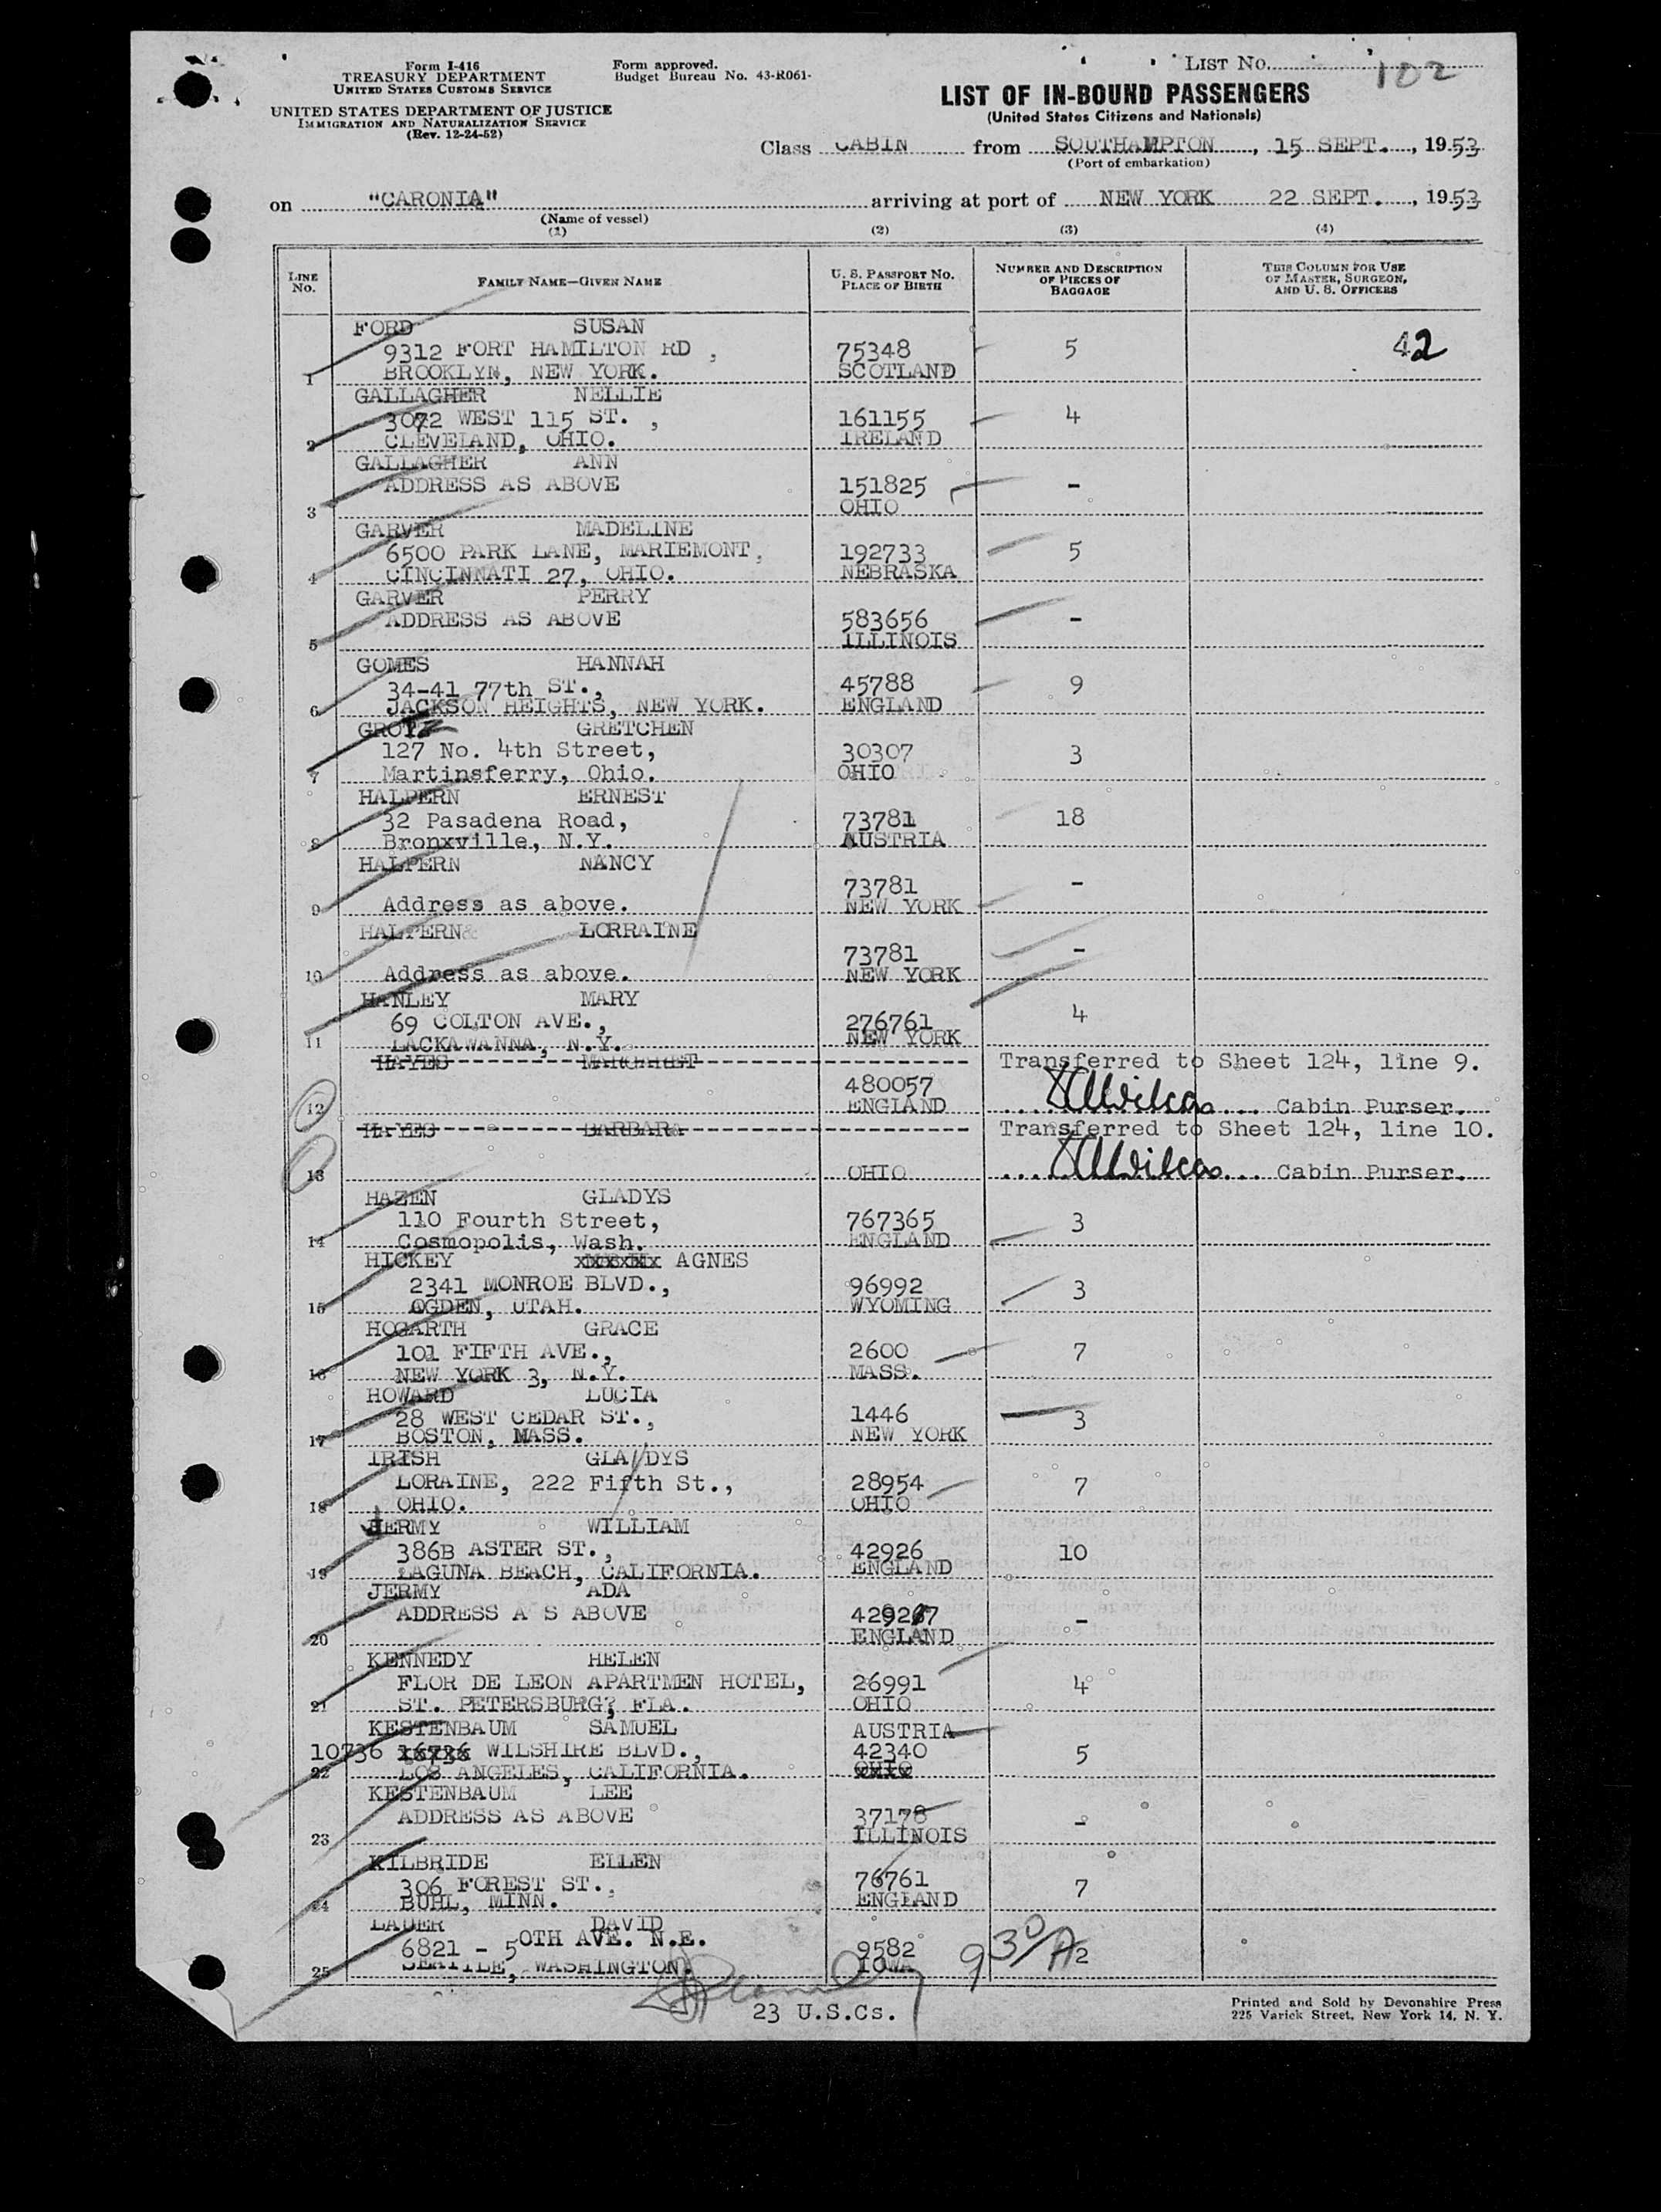 Form I-416
TREASURY DEPARTMENT
UNITED STATES CUSTOMS SERVICE
UNITED STATES DEPARTMENT OF JUSTICE
IMMIGRATION AND NATURALIZATION SERVICE
(Rev. 12-24-52)
Form approved.
Budget Bureau No. 43-R061-
LIST NO. 102
LIST OF IN-BOUND PASSENGERS
(United States Citizens and Nationals)
Class CABIN from SOUTHAMPTON, 15 SEPT., 1953
(Port of embarkation)
on "CARONIA" arriving at port of NEW YORK 22 SEPT., 1953
(Name of vessel)
(1) (2) (3) (4)
LINE NO. FAMILY NAME—GIVEN NAME U. S. PASSPORT NO. PLACE OF BIRTH NUMBER AND DESCRIPTION OF PIECES OF BAGGAGE THIS COLUMN FOR USE OF MASTER, SURGEON, AND U. S. OFFICERS
FORD SUSAN
9312 FORT HAMILTON RD , 75348 5 42
1 BROOKLYN, NEW YORK. SCOTLAND
GALLAGHER NELLIE
3072 WEST 115 ST. , 161155 4
2 CLEVELAND, OHIO. IRELAND
GALLAGHER ANN
ADDRESS AS ABOVE 151825 -
3 OHIO
GARVER MADELINE
6500 PARK LANE, MARIEMONT, 192733 5
4 CINCINNATI 27, OHIO. NEBRASKA
GARVER PERRY
ADDRESS AS ABOVE 583656 -
5 ILLINOIS
GOMES HANNAH
34-41 77th ST., 45788 9
6 JACKSON HEIGHTS, NEW YORK. ENGLAND
GROTZ GRETCHEN
127 No. 4th Street, 30307 3
7 Martinsferry, Ohio. OHIO
HALPERN ERNEST
32 Pasadena Road, 73781 18
8 Bronxville, N.Y. AUSTRIA
HALPERN NANCY
73781 -
9 Address as above. NEW YORK
HALPERN LORRAINE
73781 -
10 Address as above. NEW YORK
HANLEY MARY
69 COLTON AVE., 276761 4
11 LACKAWANNA, N.Y. NEW YORK
HAYES MARGARET Transferred to Sheet 124, line 9.
480057
12 ENGLAND Cabin Purser.
HAYES BARBARA Transferred to Sheet 124, line 10.
13 OHIO Cabin Purser.
HAZEN GLADYS
110 Fourth Street, 767365 3
14 Cosmopolis, Wash. ENGLAND
HICKEY AGNES
2341 MONROE BLVD., 96992 3
15 OGDEN, UTAH. WYOMING
HOGARTH GRACE
101 FIFTH AVE., 2600 7
16 NEW YORK 3, N.Y. MASS.
HOWARD LUCIA
28 WEST CEDAR ST., 1446 3
17 BOSTON, MASS. NEW YORK
IRISH GLADYS
LORAINE, 222 Fifth St., 28954 7
18 OHIO. OHIO
JERMY WILLIAM
386B ASTER ST., 42926 10
19 LAGUNA BEACH, CALIFORNIA. ENGLAND
JERMY ADA
ADDRESS A S ABOVE 42927 -
20 ENGLAND
KENNEDY HELEN
FLOR DE LEON APARTMEN HOTEL, 26991 4
21 ST. PETERSBURG? FLA. OHIO
KESTENBAUM SAMUEL AUSTRIA
10736 16736 WILSHIRE BLVD., 42340 5
22 LOS ANGELES, CALIFORNIA. OHIO
KESTENBAUM LEE
ADDRESS AS ABOVE 37178 -
23 ILLINOIS
KILBRIDE ELLEN
306 FOREST ST., 76761 7
24 BUHL, MINN. ENGLAND
LAUER DAVID
6821 - 50TH AVE. N.E. 9582 2
25 SEATTLE, WASHINGTON. IOWA
930A
23 U.S.Cs.
Printed and Sold by Devonshire Press
225 Varick Street, New York 14, N. Y.